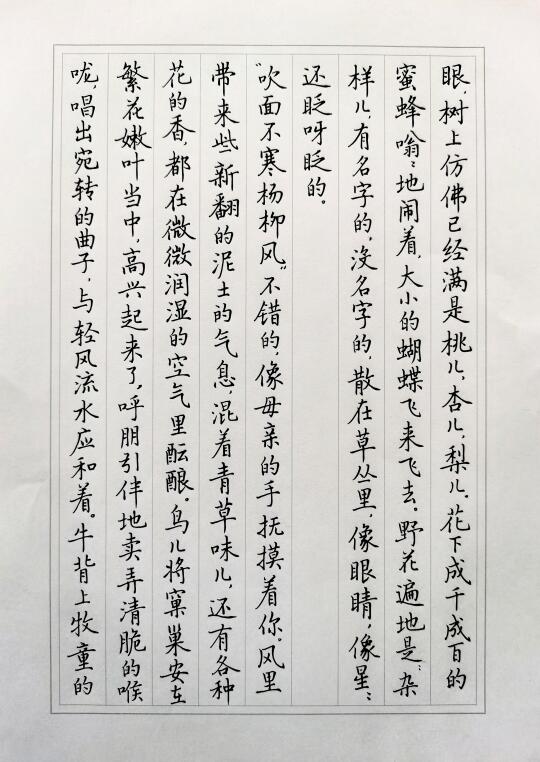 眼，树上仿佛已经满是桃儿，杏儿，梨儿。花下成千成百的
蜜蜂嗡〻地闹着，大小的蝴蝶飞来飞去。野花遍地是：杂
样儿，有名字的，没名字的，散在草丛里，像眼睛，像星〻，
还眨呀眨的。
“吹面不寒杨柳风”，不错的，像母亲的手抚摸着你。风里
带来些新翻的泥土的气息，混着青草味儿，还有各种
花的香，都在微微润湿的空气里酝酿。鸟儿将窠巢安在
繁花嫩叶当中，高兴起来了，呼朋引伴地卖弄清脆的喉
咙，唱出宛转的曲子，与轻风流水应和着。牛背上牧童的